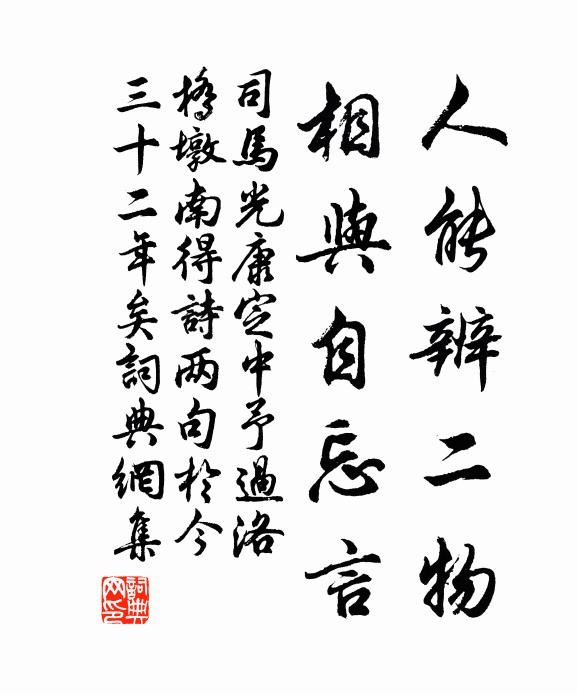 人能辨二物
相與自忘言
司馬光康定中予過洛
橋墩南得詩两句於今
三十二年矣詞典網集
詞典
网印